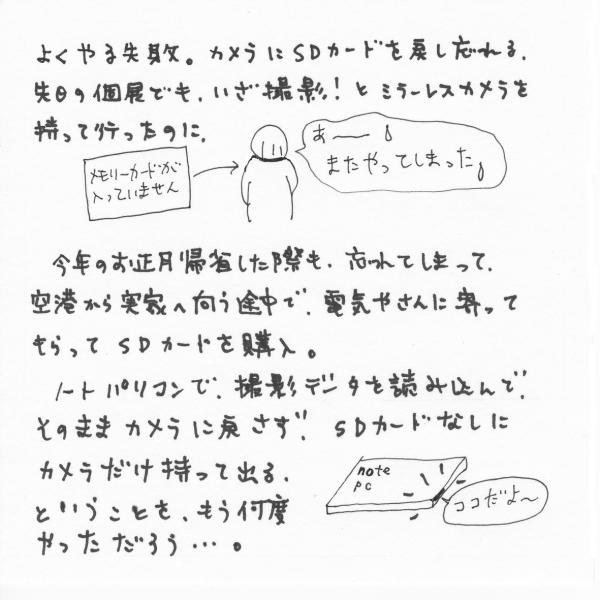 よくやる失敗。カメラにSDカードを戻し忘れる。
先日の個展でも、いざ撮影！とミラーレスカメラを
持って行ったのに、
メモリーカードが
入っていません
あ〜〜
またやってしまった
今年のお正月帰省した際も、忘れてしまって、
空港から実家へ向う途中で、電気やさんに寄って
もらってSDカードを購入。
ノートパソコンで、撮影データを読み込んで、
そのままカメラに戻さず、SDカードなしに
カメラだけ持って出る、
ということを、もう何度
やっただろう…。
note
pc
ココだよ〜